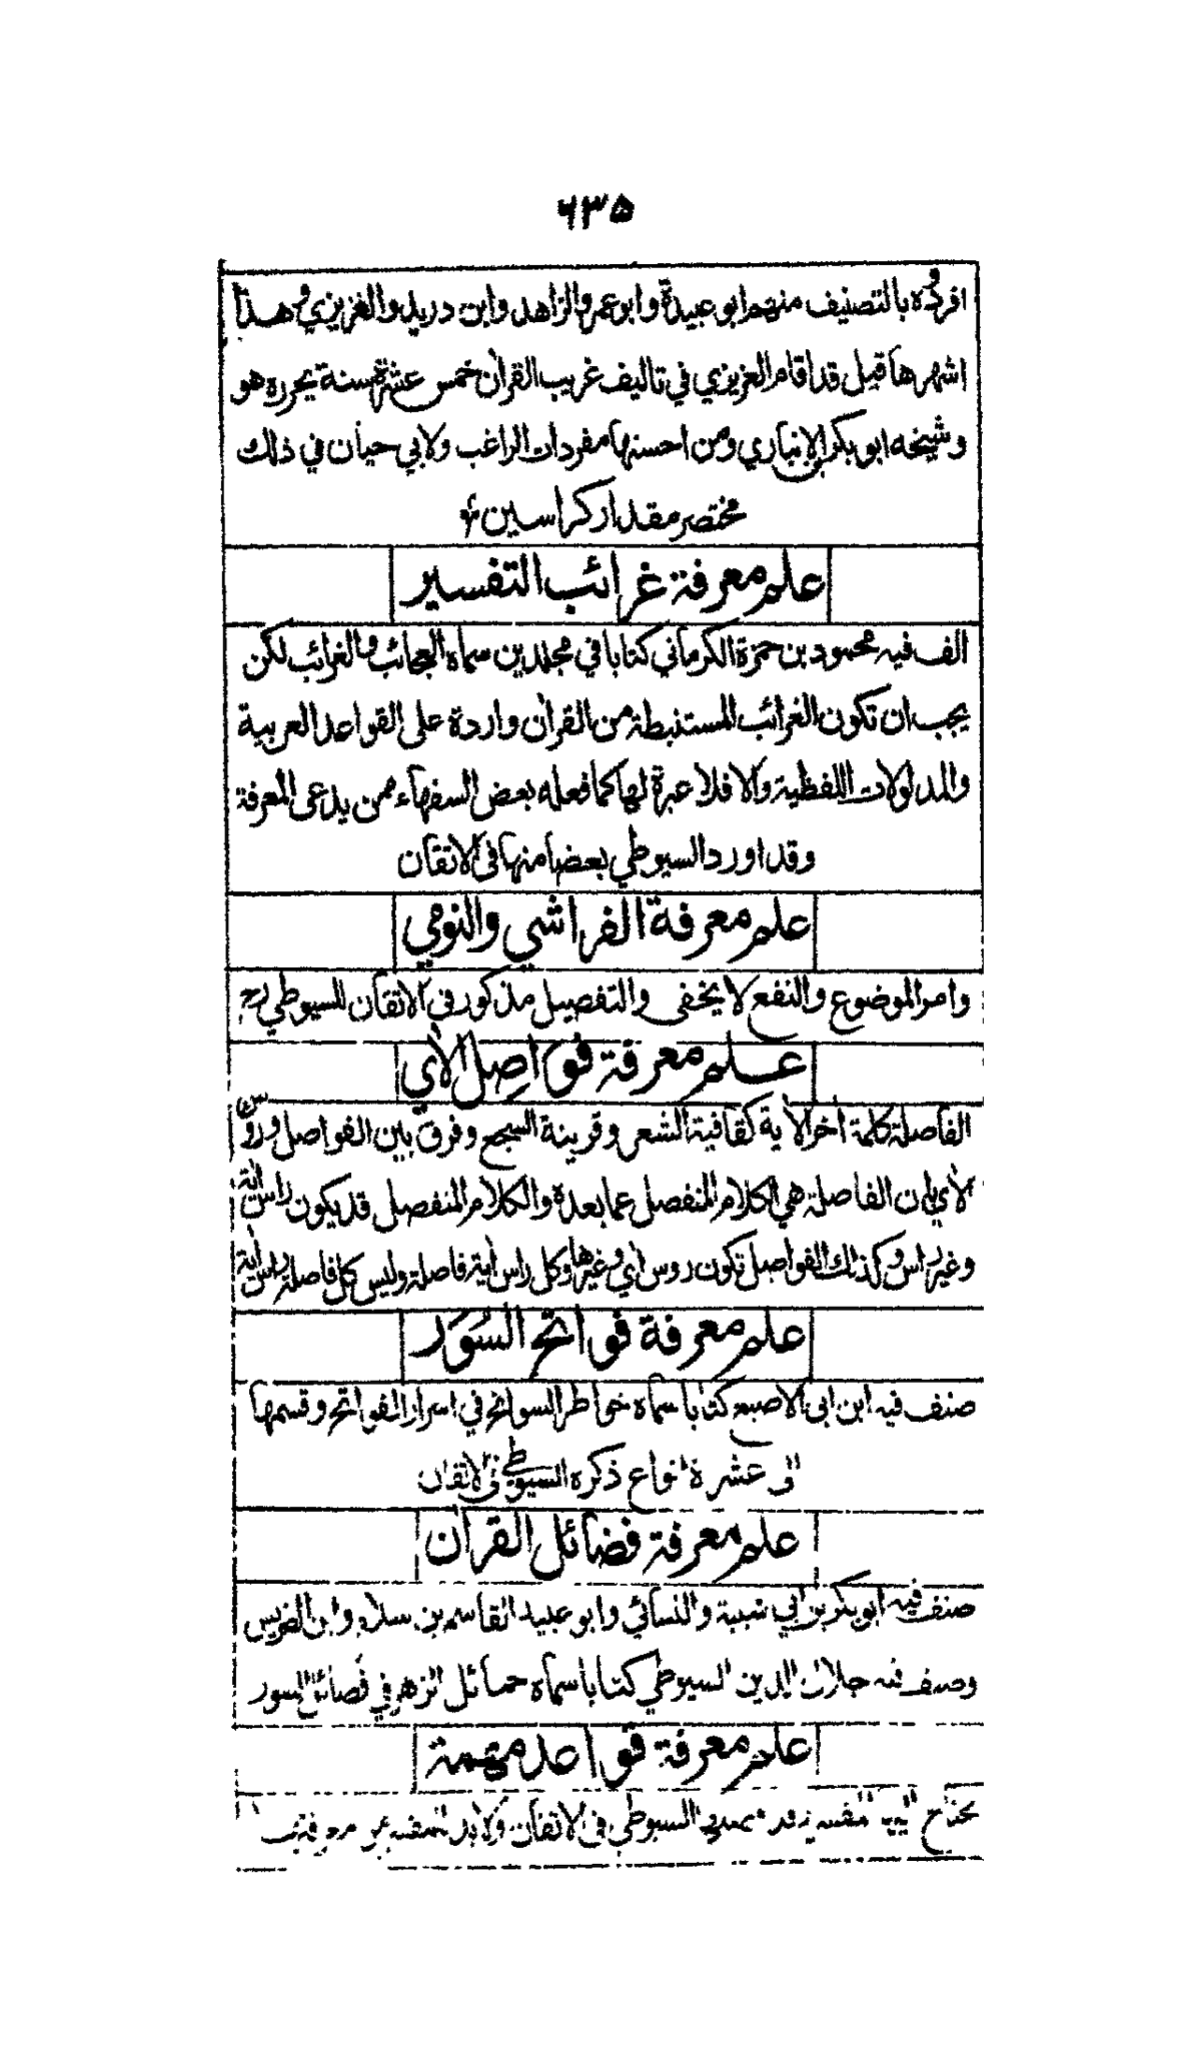 ٦٣٥
افردوه بالتصنيف منهم ابو عبيدة وابو عمر والزاهد وابن دريد والغزيزي وهذا
اشهرها قيل قد اقام العزيزي في تاليف غريب القرآن خمس عشرة سنة يحرره هو
وشيخه ابو بكر بن الانباري ومن احسنها مفردات الراغب ولابي حيان في ذلك
مختصر مقدار كراسين
علم معرفة غرائب التفسير
الف فيه محمود بن حمزة الكرماني كتابا في مجلدين سماه العجائب والغرائب لكن
يجب ان تكون الغرائب المستنبطة من القرآن واردة على القواعد العربية
والمدلولات اللفظية والا فلا عبرة لها كما فعله بعض السفهاء ممن يدعي المعرفة
وقد اورد السيوطي بعضا منها في الاتقان
علم معرفة الفراشي والنومي
وامر الموضوع والنفع لا يخفى والتفصيل مذكور في الاتقان للسيوطي رح
علم معرفة فواصل الآي
الفاصلة كلمة آخر الآية كقافية الشعر وقرينة السجع وفرق بين الفواصل وروس
الآي بان الفاصلة هي الكلام المنفصل عما بعده والكلام المنفصل قد يكون راس آية
وغير راس وكذلك الفواصل تكون روس آي وغيرها وكل راس آية فاصلة وليس كل فاصلة راس آية
علم معرفة فواتح السُوَر
صنف فيه ابن ابي الاصبع كتابا سماه خواطر السوانح في اسرار الفواتح وقسمها
الى عشرة انواع ذكره السيوطي في الاتقان
علم معرفة فضائل القرآن
صنف فيه ابو بكر بن ابي شيبة والنسائي وابو عبيد القاسم بن سلام وابن الضريس
وصنف فيه جلال الدين السيوطي كتابا سماه حمائل الزهر في فضائل السور
علم معرفة قواعد مهمة
يحتاج اليها المفسر السيوطي في الاتقان ولابد للمفسر من معرفتها